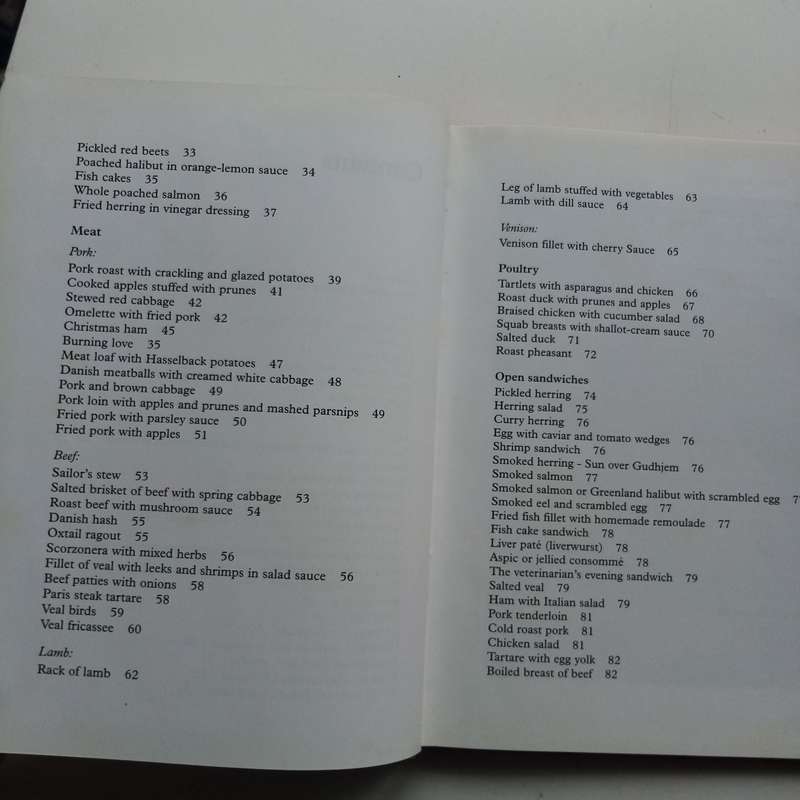 Pickled red beets 33
Poached halibut in orange-lemon sauce 34
Fish cakes 35
Whole poached salmon 36
Fried herring in vinegar dressing 37
Meat
Pork:
Pork roast with crackling and glazed potatoes 39
Cooked apples stuffed with prunes 41
Stewed red cabbage 42
Omelette with fried pork 42
Christmas ham 45
Burning love 35
Meat loaf with Hasselback potatoes 47
Danish meatballs with creamed white cabbage 48
Pork and brown cabbage 49
Pork loin with apples and prunes and mashed parsnips 49
Fried pork with parsley sauce 50
Fried pork with apples 51
Beef:
Sailor's stew 53
Salted brisket of beef with spring cabbage 53
Roast beef with mushroom sauce 54
Danish hash 55
Oxtail ragout 55
Scorzonera with mixed herbs 56
Fillet of veal with leeks and shrimps in salad sauce 56
Beef patties with onions 58
Paris steak tartare 58
Veal birds 59
Veal fricassee 60
Lamb:
Rack of lamb 62
Leg of lamb stuffed with vegetables 63
Lamb with dill sauce 64
Venison:
Venison fillet with cherry Sauce 65
Poultry
Tartlets with asparagus and chicken 66
Roast duck with prunes and apples 67
Braised chicken with cucumber salad 68
Squab breasts with shallot-cream sauce 70
Salted duck 71
Roast pheasant 72
Open sandwiches
Pickled herring 74
Herring salad 75
Curry herring 76
Egg with caviar and tomato wedges 76
Shrimp sandwich 76
Smoked herring - Sun over Gudhjem 76
Smoked salmon 77
Smoked salmon or Greenland halibut with scrambled egg
Smoked eel and scrambled egg 77
Fried fish fillet with homemade remoulade 77
Fish cake sandwich 78
Liver paté (liverwurst) 78
Aspic or jellied consommé 78
The veterinarian's evening sandwich 79
Salted veal 79
Ham with Italian salad 79
Pork tenderloin 81
Cold roast pork 81
Chicken salad 81
Tartare with egg yolk 82
Boiled breast of beef 82